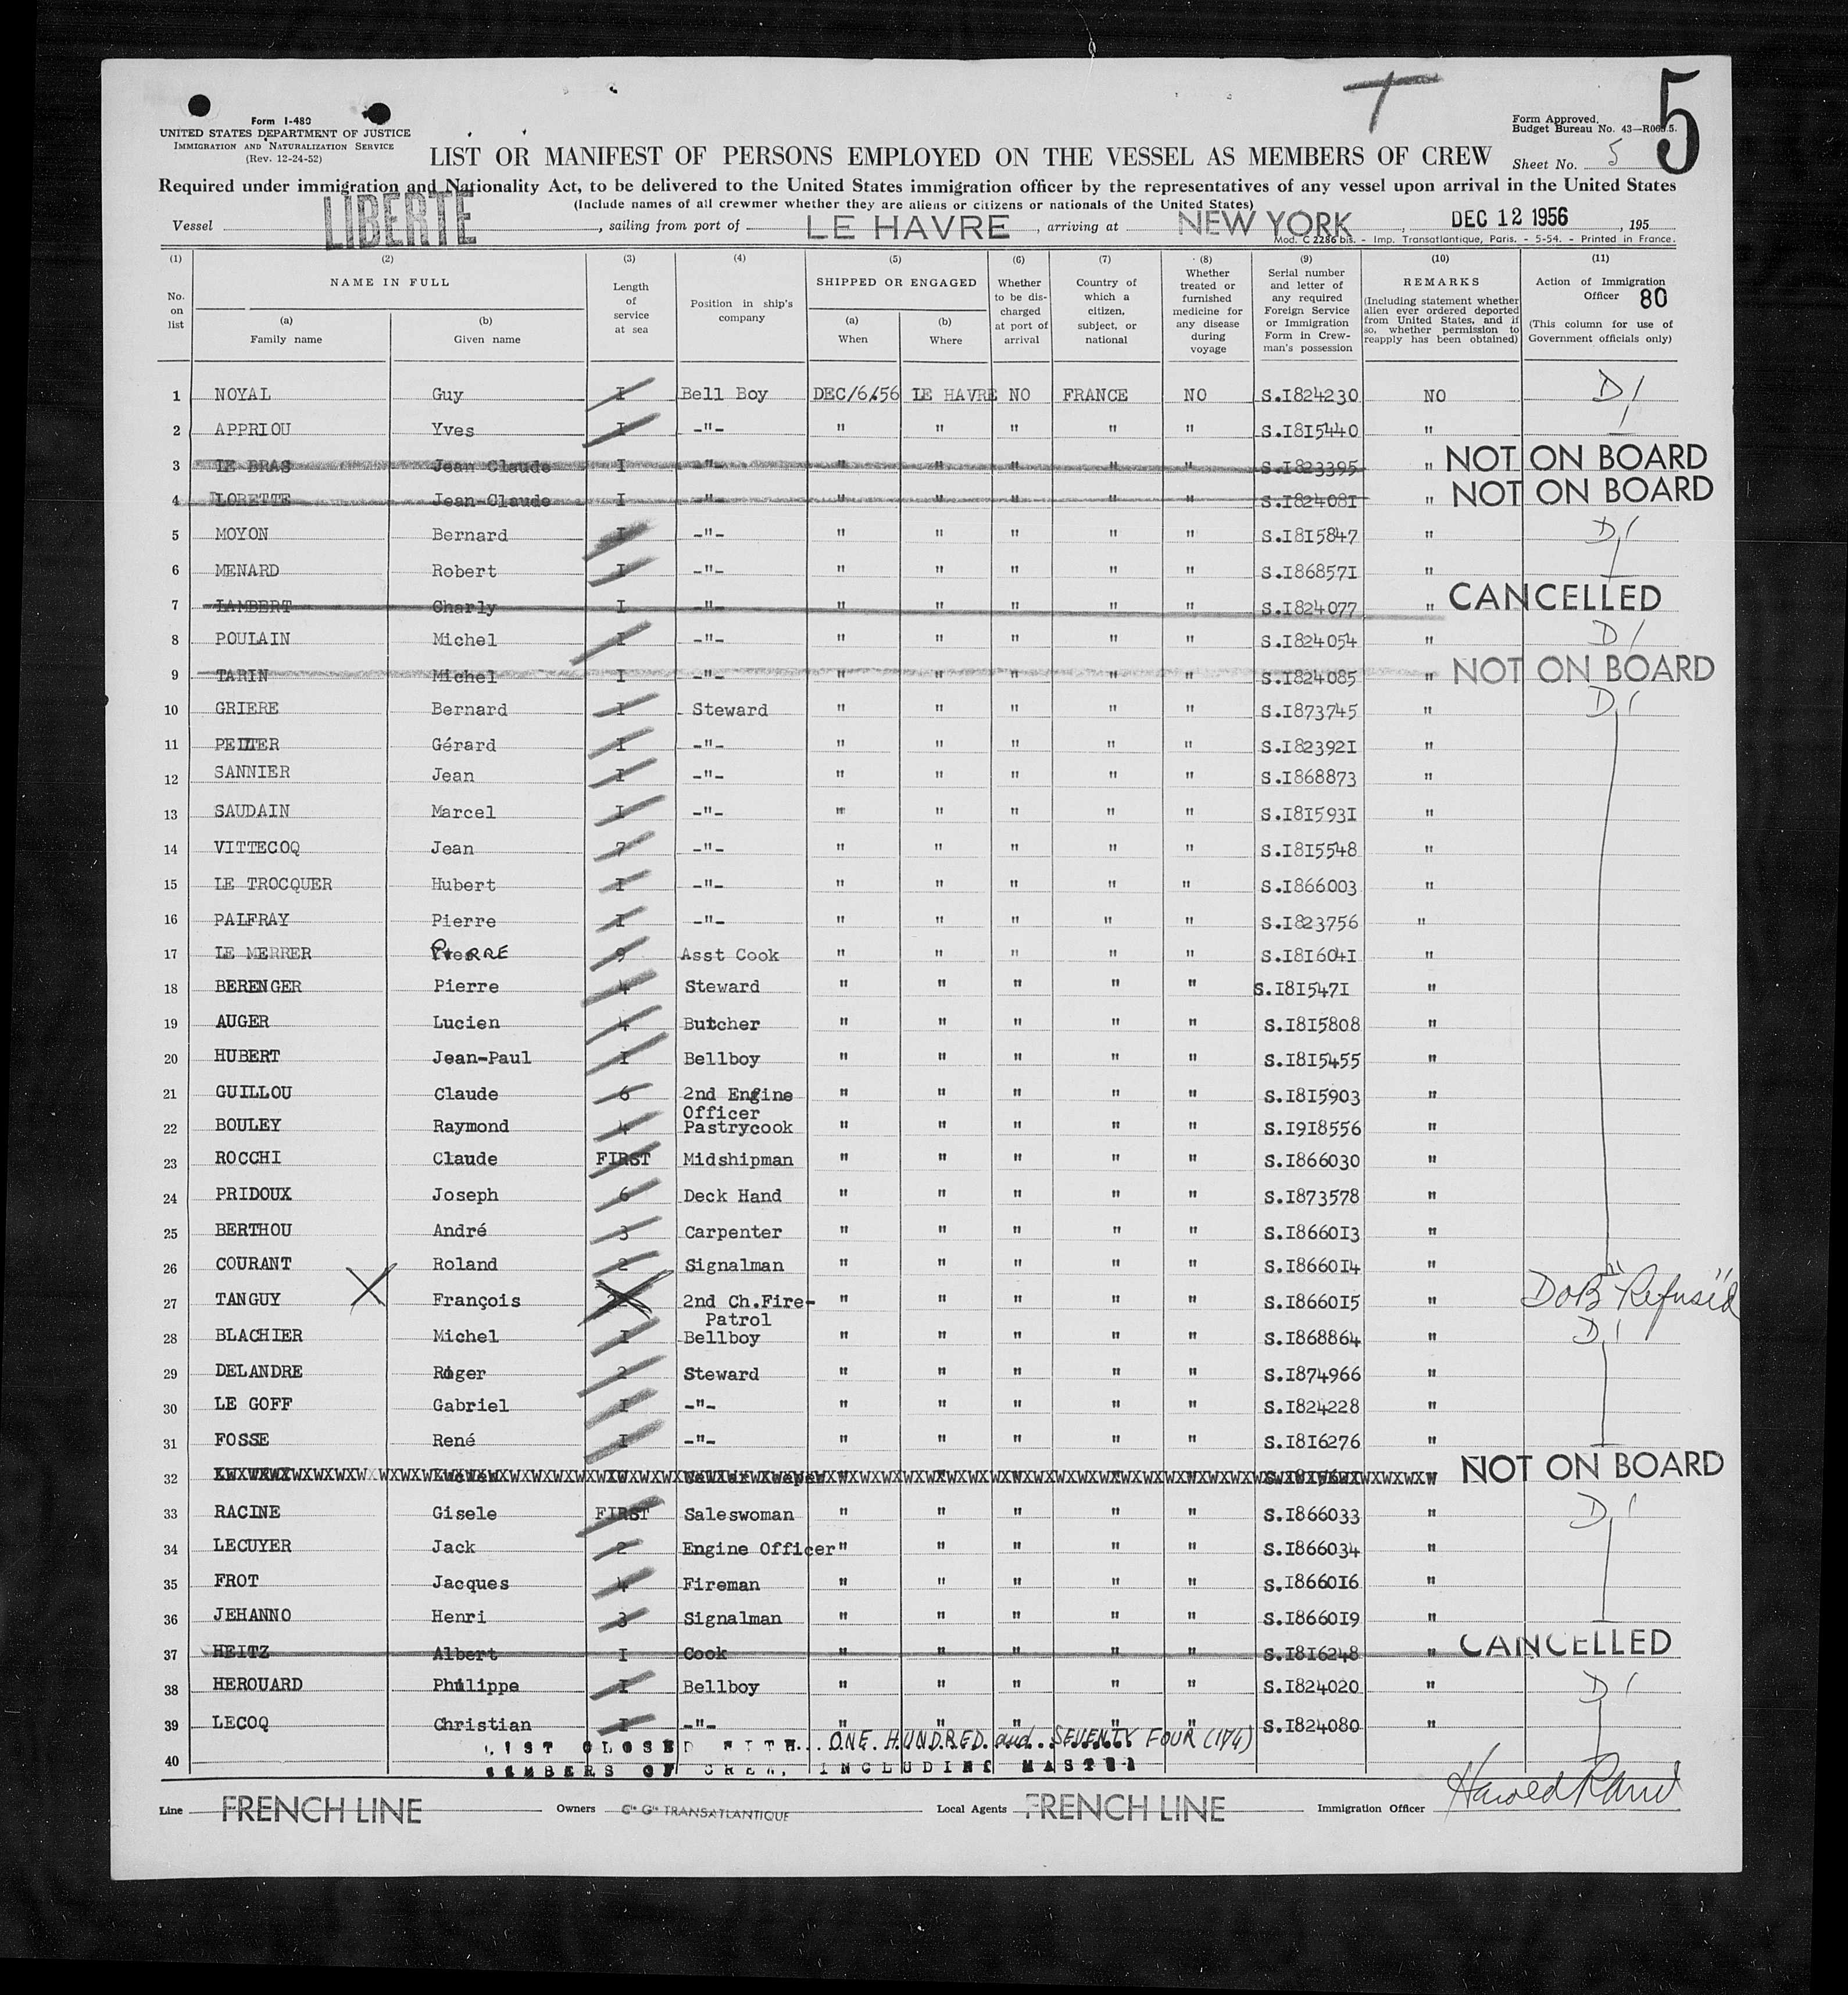 5
Form I-480
UNITED STATES DEPARTMENT OF JUSTICE
IMMIGRATION AND NATURALIZATION SERVICE
(Rev. 12-24-52)
Form Approved.
Budget Bureau No. 43—R065.5.
LIST OR MANIFEST OF PERSONS EMPLOYED ON THE VESSEL AS MEMBERS OF CREW
Sheet No. 5
Required under immigration and Nationality Act, to be delivered to the United States immigration officer by the representatives of any vessel upon arrival in the United States
(Include names of all crewmer whether they are aliens or citizens or nationals of the United States)
Vessel LIBERTE, sailing from port of LE HAVRE, arriving at NEW YORK, DEC 12 1956, 195
Mod. C 2286 bis. - Imp. Transatlantique, Paris. - 5-54. - Printed in France.
(1) (2) (3) (4) (5) (6) (7) (8) (9) (10) (11)
No. on list
NAME IN FULL
(a) Family name
(b) Given name
Length of service at sea
Position in ship's company
SHIPPED OR ENGAGED
(a) When
(b) Where
Whether to be discharged at port of arrival
Country of which a citizen, subject, or national
Whether treated or furnished medicine for any disease during voyage
Serial number and letter of any required Foreign Service or Immigration Form in Crewman's possession
REMARKS
(Including statement whether alien ever ordered deported from United States, and if so, whether permission to reapply has been obtained)
Action of Immigration Officer 80
(This column for use of Government officials only)
1 NOYAL Guy I Bell Boy DEC/6.56 LE HAVRE NO FRANCE NO S.I824230 NO D1
2 APPRIOU Yves I -"- " " " " " S.I815440 "
3 LE BRAS Jean Claude I -"- " " " " " S.I823395 " NOT ON BOARD
4 LORETTE Jean-Claude I -"- " " " " " S.I824081 " NOT ON BOARD
5 MOYON Bernard I -"- " " " " " S.I815847 " D1
6 MENARD Robert I -"- " " " " " S.I868571 "
7 LAMBERT Charly I -"- " " " " " S.I824077 " CANCELLED
8 POULAIN Michel I -"- " " " " " S.I824054 " D1
9 TARIN Michel I -"- " " " " " S.I824085 " NOT ON BOARD
10 GRIERE Bernard I Steward " " " " " S.I873745 " D1
11 Gérard I -"- " " " " " S.I823921 "
12 SANNIER Jean I -"- " " " " " S.I868873 "
13 SAUDAIN Marcel I -"- " " " " " S.I815931 "
14 VITTECOQ Jean 7 -"- " " " " " S.I815548 "
15 LE TROCQUER Hubert I -"- " " " " " S.I866003 "
16 PALFRAY Pierre I -"- " " " " " S.I823756 "
17 LE MERRER PIERRE 9 Asst Cook " " " " " S.I816041 "
18 BERENGER Pierre 4 Steward " " " " " S.I815471 "
19 AUGER Lucien 4 Butcher " " " " " S.I815808 "
20 HUBERT Jean-Paul I Bellboy " " " " " S.I815455 "
21 GUILLOU Claude 6 2nd Engine Officer " " " " " S.I815903 "
22 BOULEY Raymond 4 Pastrycook " " " " " S.I918556 "
23 ROCCHI Claude FIRST Midshipman " " " " " S.I866030 "
24 PRIDOUX Joseph 6 Deck Hand " " " " " S.I873578 "
25 BERTHOU André 3 Carpenter " " " " " S.I866013 "
26 COURANT Roland 2 Signalman " " " " " S.I866014 "
27 TANGUY François 2nd Ch.Fire-Patrol " " " " " S.I866015 " DoB "Refused"
28 BLACHIER Michel I Bellboy " " " " " S.I868864 " D1
29 DELANDRE Roger 2 Steward " " " " " S.I874966 "
30 LE GOFF Gabriel I -"- " " " " " S.I824228 "
31 FOSSE René I -"- " " " " " S.I816276 "
32 NOT ON BOARD
33 RACINE Gisele FIRST Saleswoman " " " " " S.I866033 " D1
34 LECUYER Jack 2 Engine Officer " " " " " S.I866034 "
35 FROT Jacques 4 Fireman " " " " " S.I866016 "
36 JEHANNO Henri 3 Signalman " " " " " S.I866019 "
37 HEITZ Albert I Cook " " " " " S.I816248 " CANCELLED
38 HEROUARD Philippe I Bellboy " " " " " S.I824020 " D1
39 LECOQ Christian I -"- " " " " " S.I824080 "
LIST CLOSED WITH ONE HUNDRED and SEVENTY FOUR (174)
40 MEMBERS OF CREW, INCLUDING MASTER
Line FRENCH LINE Owners Cie Gle TRANSATLANTIQUE Local Agents FRENCH LINE Immigration Officer Harold